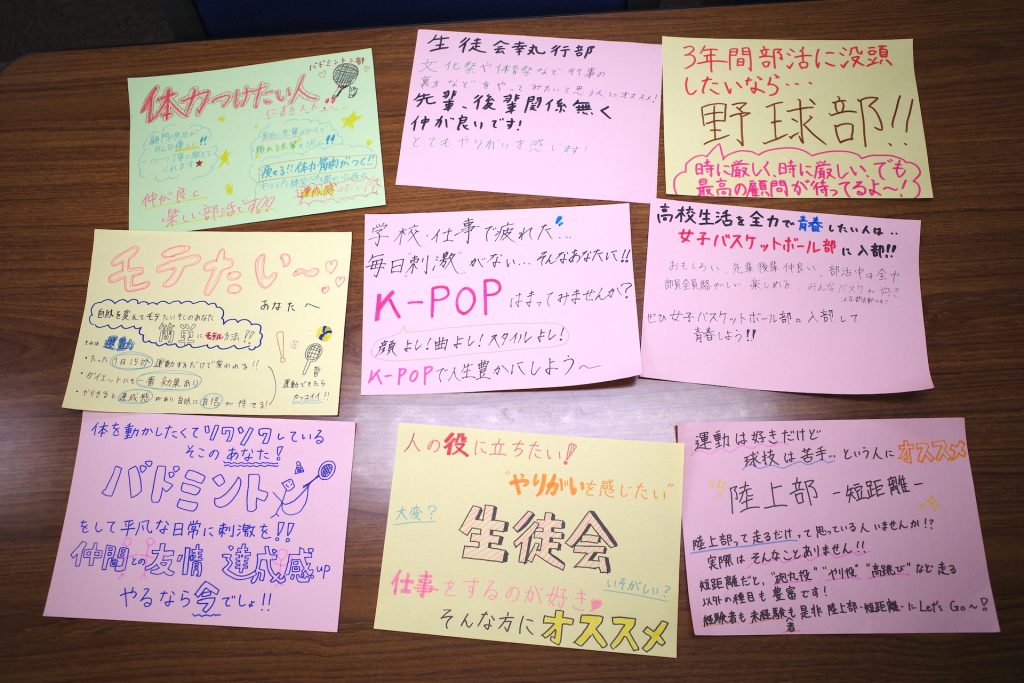 バドミントン部
体力つけたい人
におススメ
顧問の先生が
みんな優しい!!
くれます★
頼れる先輩
痩せる!!体力・筋肉がつく!!
達成感
仲が良く
楽しい部活です!!
生徒会執行部
文化祭や体育祭など仕事の
裏方などをやってみたいと思う人にオススメ!
先輩、後輩関係無く
仲が良いです!
とてもやりがいを感じます!
3年間部活に没頭
したいなら‥‥
野球部!!
時に厳しく、時に厳しい、でも
最高の顧問が待ってるよ〜!
モテたい〜♡
あなたへ
自体を変えてモテたいそこのあなた
簡単にモテル方法!!
それは運動
・たった1日15分運動するだけで変われる!!
・ダイエットにも一番効果あり
・やりきると達成感があり自然に自信が持てる!
運動できたら
カッコイイ!!
学校・仕事で疲れた…
毎日刺激がない…そんなあなたに!!
K-POPはまってみませんか?
顔よし!曲よし!スタイルよし!
K-POPで人生豊かにしよう〜
高校生活を全力で青春したい人は‥
女子バスケットボール部に入部!!
おもしろい、先輩後輩仲良い、部活中は全力
みんなバスケが好き
ぜひ女子バスケットボール部に入部して
青春しよう!!
体を動かしたくてソワソワしている
そこのあなた!
バドミントン
をして平凡な日常に刺激を!!
仲間との友情 達成感up
やるなら今でしょ!!
人の役に立ちたい!
"やりがいを感じたい"
大変?
生徒会
いそがしい?
仕事をするのが好き♥
そんな方にオススメ
運動は好きだけど
球技は苦手…という人にオススメ
陸上部 -短距離-
陸上部って走るだけって思っている人いませんか!?
実際はそんなことありません!!
短距離だと、"砲丸投" "やり投" "高跳び" など走る
以外の種目も豊富です!
経験者も未経験者も是非陸上部-短距離-にLet's Go〜!